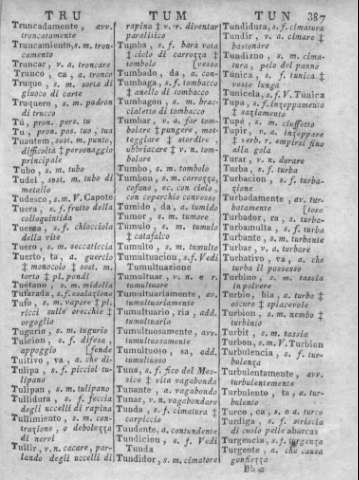 TRU TUM TUN 387
Truncadamente, avv.
troncatamente
Truncamiento, s. m. tron-
camento
Truncar, v. a. troncare
Trunco, ca, a. tronco
Truque, s. m. sorta di
giuoco di carte
Truquero, s. m. padron
di trucco
Tú, pron. pers. tu
Tu, pron. pos. tuo, tua
Tuautem, sost. m. punto,
difficoltà ‡ personaggio
principale
Tubo, s. m. tubo
Tudel, sost. m. tubo di
metallo
Tudesco, s. m. V. Capote
Tuera, s. f. frutto della
colloquintida
Tuerca, s. f. chiocciola
della vite
Tuero, s. m. seccaticcia
Tuerto, ta, a. guercio
‡ monocolo ‡ sost. m.
torto ‡ pl. pondi
Tuétano, s. m. midolla
Tufarada, s. f. esalazione
Tufo, s. m. vapore ‡ pl.
ricci sulle orecchie ‡
orgoglio
Tugurio, s. m. tugurio
Tuicion, s. f. difesa,
appoggio [fende
Tuitivo, va, a. che di-
Tulipa, s. f. picciol tu-
lipano
Tulipan, s. m. tulipano
Tullidura, s. f. feccia
degli uccelli di rapina
Tullimiento, s. m. con-
trazione, o debolezza
di nervi
Tullir, v. n. cacare, par-
lando degli uccelli di
rapina ‡ v. r. diventar
paralitico
Tumba, s. f. bara vota
‡ cielo di carrozza ‡
tombolo [vesso
Tumbado, da, a. con-
Tumbaga, s. f. tombacco
‡ anello di tombacco
Tumbagon, s. m. brac-
cialetto di tombacco
Tumbar, v. a. far tom-
bolare ‡ pungere, mot-
teggiare ‡ stordire,
ubbriacare ‡ v. n. tom-
bolare
Tumbo, s. m. tombolo
Tumbon, s. m. carrozza,
cofano, ec. con cielo,
con coperchio convesso
Tumido, da, a. tumido
Tumor, s. m. tumore
Túmulo, s. m. tumulo
‡ catafalco
Tumulto, s. m. tumulto
Tumultuacion, s. f. Vedi
Tumultuazione
Tumultuar, v. n. e r.
tumultuare
Tumultuariamente, av.
tumultuariamente
Tumultuario, ria, add.
tumultuario
Tumultuosamente, avv.
tumultuosamente
Tumultuoso, sa, add.
tumultuoso
Tuna, s. f. fico del Mes-
sico ‡ vita vagabonda
Tunante, a. vagabondo
Tunar, v. n. vagabondare
Tunda, s. f. cimatura ‡
carpiccio
Tundente, a. contundente
Tundicion, s. f. Vedi
Tunda
Tundidor, s. m. cimatore
Tundidura, s. f. cimatura
Tundir, v. a. cimare ‡
bastonare
Tundizno, s. m. cima-
tura, pelo del panno
Túnica, s. f. tunica ‡
veste lunga
Tunicela, s. f. V. Túnica
Tupa, s. f. inzeppamento
‡ saziamento
Tupé, s. m. ciuffetto
Tupir, v. a. inzeppare
‡ verb. r. empirsi fino
alla gola
Turar, v. n. durare
Turba, s. f. turba
Turbacion, s. f. turba-
zione
Turbadamente, av. tur-
batamente [tore
Turbador, ra, a. turba-
Turbamulta, s. f. turba
Turbante, s. m. turbante
Turbar, v. a. turbare
Turbativo, va, a. che
turba il possesso
Turbino, s. m. tassia
in polvere
Turbio, bia, a. turbo ‡
oscuro ‡ spiacevole
Turbion, s. m. nembo ‡
turbinio
Turbit, s. m. tassia
Turbon, s. m. V. Turbion
Turbulencia, s. f. tur-
bolenza
Turbulentamente, avv.
turbulentemente
Turbulento, ta, a. tur-
bolento
Turco, ca, s. e a. turco
Turdiga, s. f. striscia
di cuolo pelle abarcas
Turgencia, s. f. turgenza
Turgente, a. che causa
gonfiezza